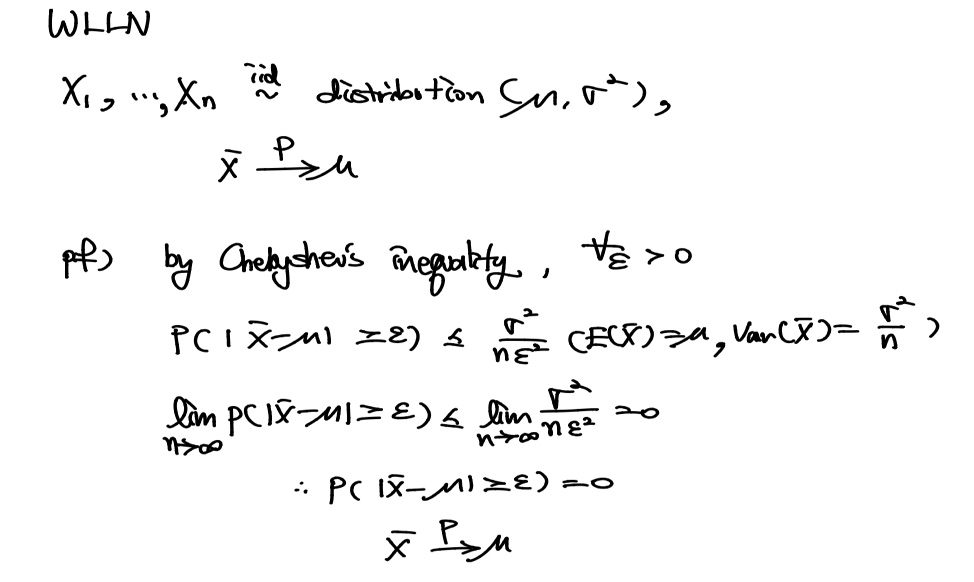 WLLN
X₁, ..., Xₙ iid ~ distribution (μ, σ²),
X̄ →ᴾ μ
pf) by Chebyshev's inequality, ∀ε > 0
P(|X̄-μ| ≥ε) ≤ σ²/nε² (E(X̄)=μ, Var(X̄)= σ²/n)
lim n→∞ P(|X̄-μ|≥ε) ≤ lim n→∞ σ²/nε² =0
∴ P(|X̄-μ|≥ε)=0
X̄ →ᴾ μ